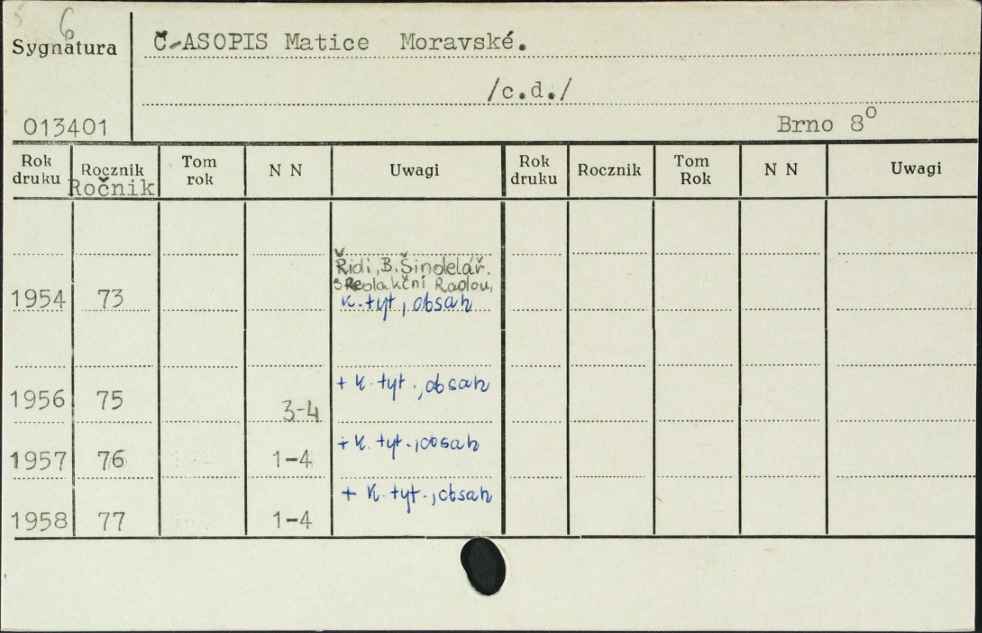 6
Sygnatura
Č-ASOPIS Matice Moravské.
/c.d./
013401
Brno 8⁰
Rok druku Rocznik Tom rok N N Uwagi Rok druku Rocznik Tom Rok N N Uwagi
Ročnik
Řidi, B. Šindelář.
s Redakční Radou,
1954 73 K. tyt, obsah
1956 75 3-4 + K. tyt., obsah
1957 76 1-4 + K. tyt., obsah
1958 77 1-4 + K. tyt., obsah